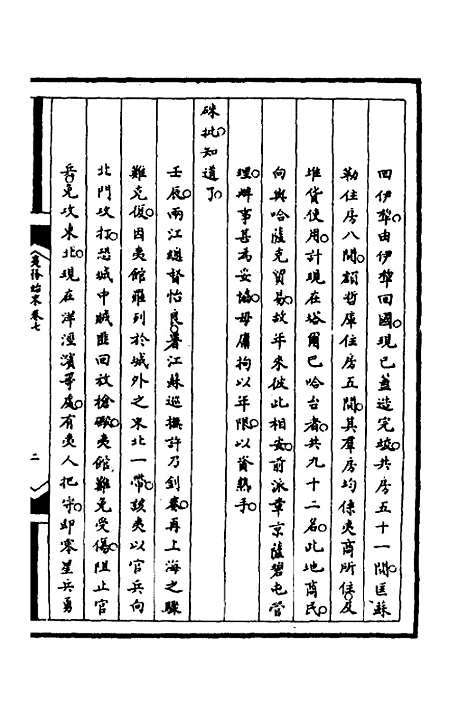 回伊犂由伊犂回國。現已蓋造完竣。共房五十一間。匡蘇
勒住房八間。頟哲庫住房五間。其羣房均係夷商所住。及
堆貨使用。計現在塔爾巴哈台者。共九十二名。此地商民。
向與哈薩克貿易。故年來彼此相安。前派章京薩碧屯當
理。辦事甚為妥協。毋庸拘以年限。以資熟手。
硃批。知道了。
壬辰。兩江總督怡良。署江蘇巡撫許乃釗奏。再上海之驟
難克復。因夷館羅列於城外之東北一帶。該夷以官兵向
北門攻打。恐城中賊匪回放槍礮。夷館難免受傷。阻止官
兵免攻東北。現在洋涇濱等處。有夷人把守。即零星兵勇
夷務始末卷七
二